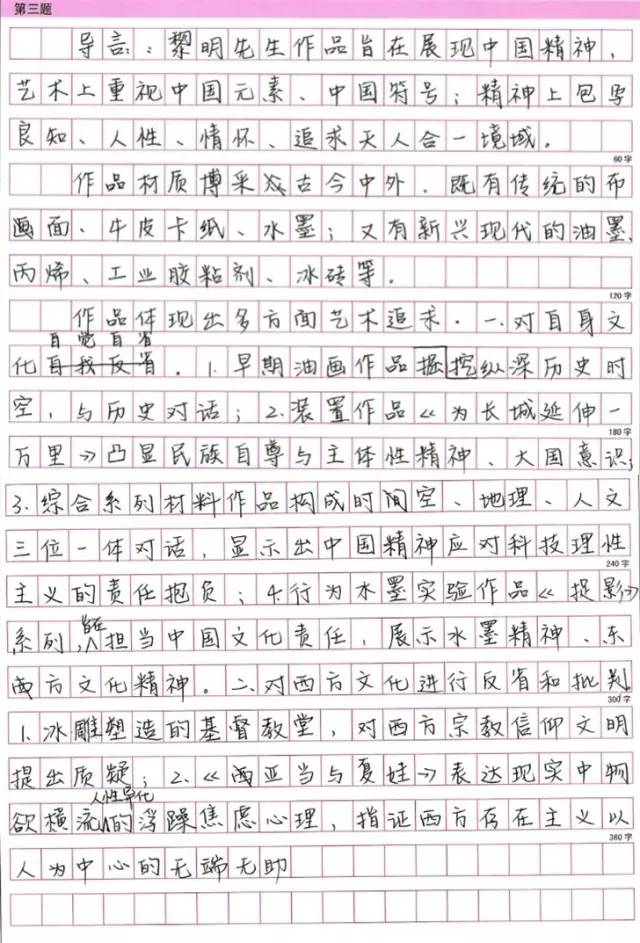 第三题
导言：：黎明先生作品旨在展现中国精神，
艺术上重视中国元素、中国符号；精神上包孕
良知、人性、情怀、追求天人合一境域。
60字
作品材质博采古今中外，既有传统的布
画面、牛皮卡纸、水墨；又有新兴现代的油墨、
丙烯、工业胶粘剂、冰砖等。
120字
作品体现出多方面艺术追求。一、对自身文
自觉自省
化自我反省。1.早期油画作品掘挖纵深历史时
空，与历史对话；2.装置作品《为长城延伸一
180字
万里》凸显民族自尊与主体性精神、大国意识；
3.综合系列材料作品构成时间空、地理、人文
三位一体对话，显示出中国精神应对科技理性
240字
主义的责任抱负；4.行为水墨实验作品《捉影》
系列，旨在担当中国文化责任，展示水墨精神、东
西方文化精神。二、对西方文化进行反省和批判
300字
1.冰雕塑造的基督教堂，对西方宗教信仰文明
提出质疑；2.《西亚当与夏娃》表达现实中物
人性异化
欲横流的浮躁焦虑心理，指证西方存在主义以
360字
人为中心的无端无助